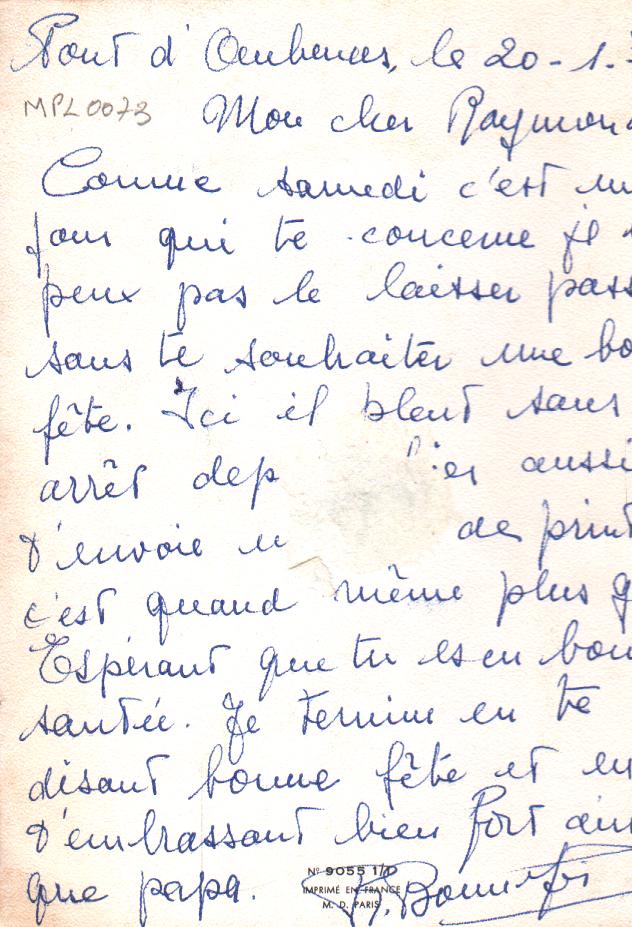 Pont d'Aubenas, le 20-1.
MPL0073
Mon cher Raymon
Comme samedi c'est un
jour qui te concerne je
peux pas le laisser pass
sans te souhaiter une bo
fête. Ici il pleut sans
arrêt dep ier aussi
t'envoie u de print
c'est quand même plus g
Espérant que tu es en bon
santée. Je termine en te
disant bonne fête et en
t'embrassant bien fort ain
que papa.
Nº 9055 1/D
IMPRIMÉ EN FRANCE
M. D. PARIS